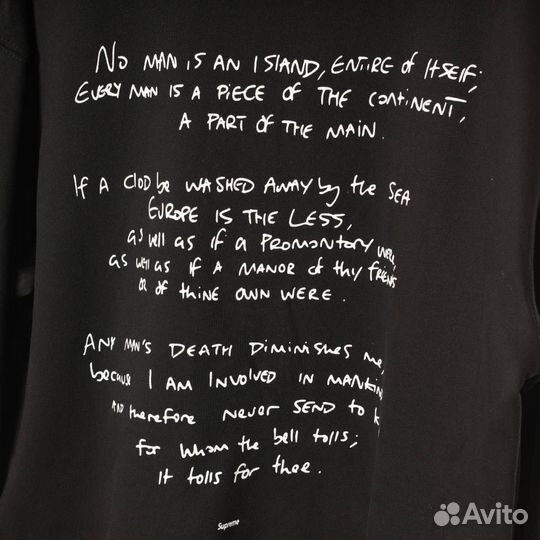 No MAN iS AN ISlAND, ENTiRE of ItSElf;
EVERY MAN IS A PIECE OF THE CoNtiNENT,
A PART OF THE MAIN.
If A Clod be WASHED AWAY by the SEA
EUROPE IS THE LESS,
as well as if a PROMONtoRY WERE,
as well as if A MANOR of thy friENds
or of thine OWN WERE.
ANY MAN'S DEATH DiMiNiSHES me,
because I AM INVOLVED IN MANKiN
AND therefore Never SEND to k
for whom the bell tolls;
It tolls for thee.
Supreme
Avito